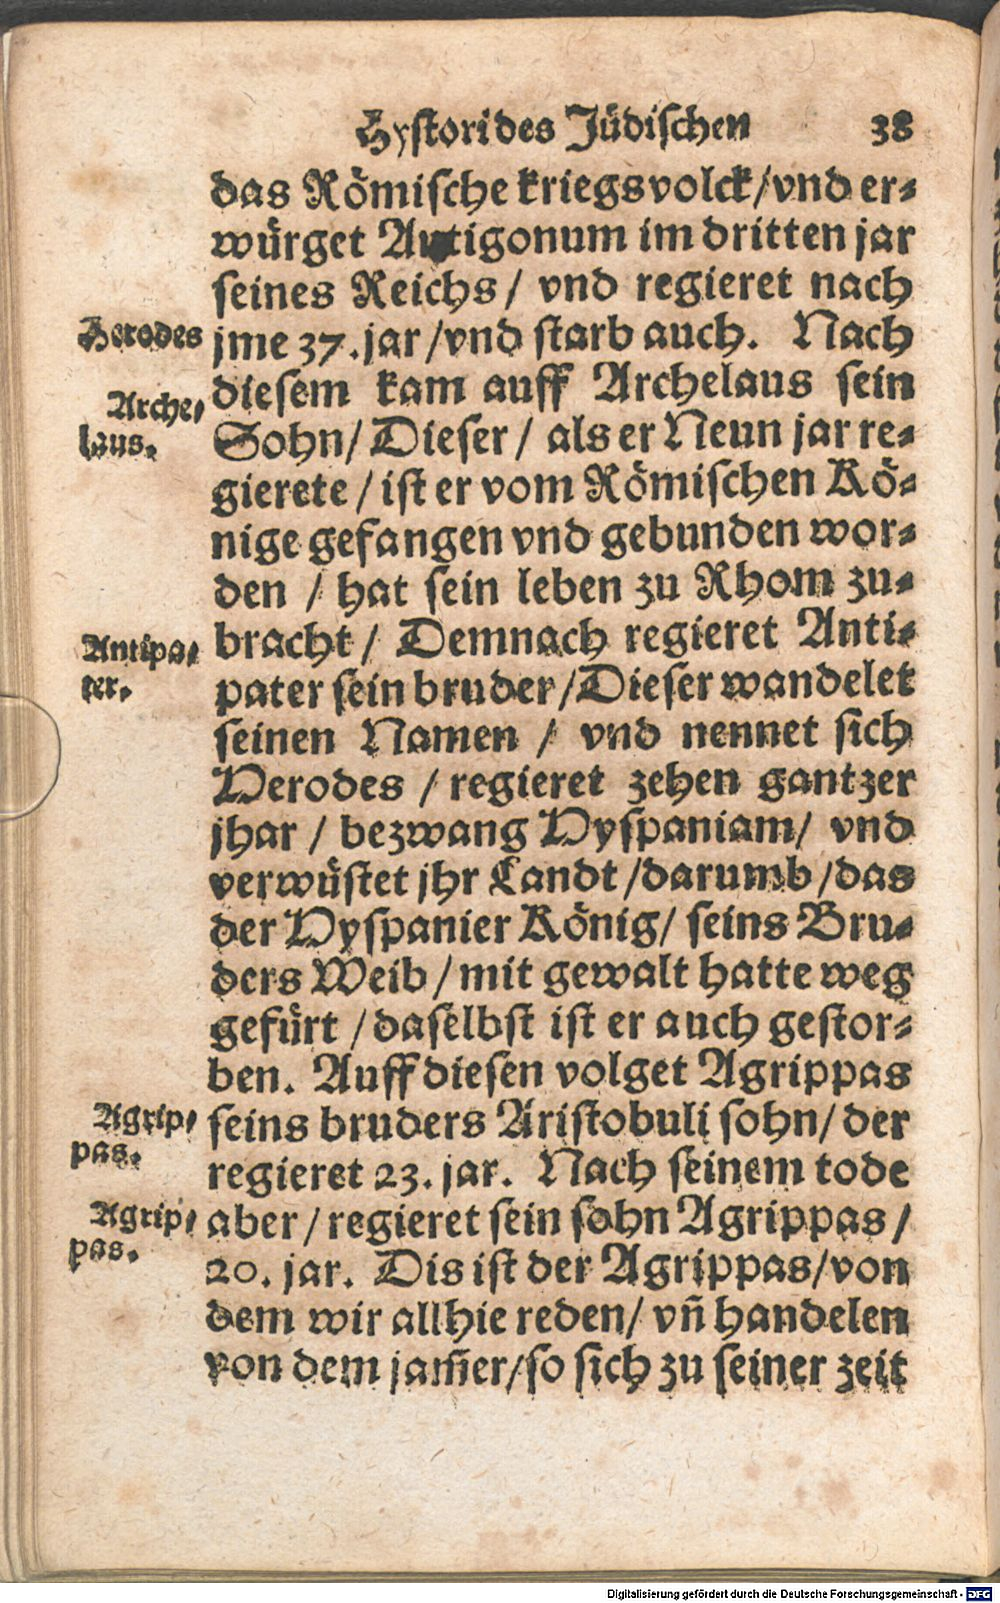 Hystori des Jüdischen 38
das Römische kriegsvolck/vnd er-
würget Antigonum im dritten jar
seines Reichs / vnd regieret nach
Herodes
jme 37. jar /vnd starb auch. Nach
diesem kam auff Archelaus sein
Arche-
laus.
Sohn/ Dieser / als er Neun jar re-
gierete / ist er vom Römischen Kö-
nige gefangen vnd gebunden wor-
den / hat sein leben zu Rhom zu-
bracht / Demnach regieret Anti-
Antipa-
ter.
pater sein bruder /Dieser wandelet
seinen Namen / vnd nennet sich
Herodes / regieret zehen gantzer
jhar / bezwang Hyspaniam/ vnd
verwüstet jhr Landt /darumb /das
der Hyspanier König/ seins Bru-
ders Weib / mit gewalt hatte weg
gefürt /daselbst ist er auch gestor-
ben. Auff diesen volget Agrippas
Agrip-
pas.
seins bruders Aristobuli sohn/ der
regieret 23. jar. Nach seinem tode
Agrip-
pas.
aber / regieret sein sohn Agrippas /
20. jar. Dis ist der Agrippas/von
dem wir allhie reden/ vñ handelen
von dem jam̃er/so sich zu seiner zeit
Digitalisierung gefördert durch die Deutsche Forschungsgemeinschaft - DFG